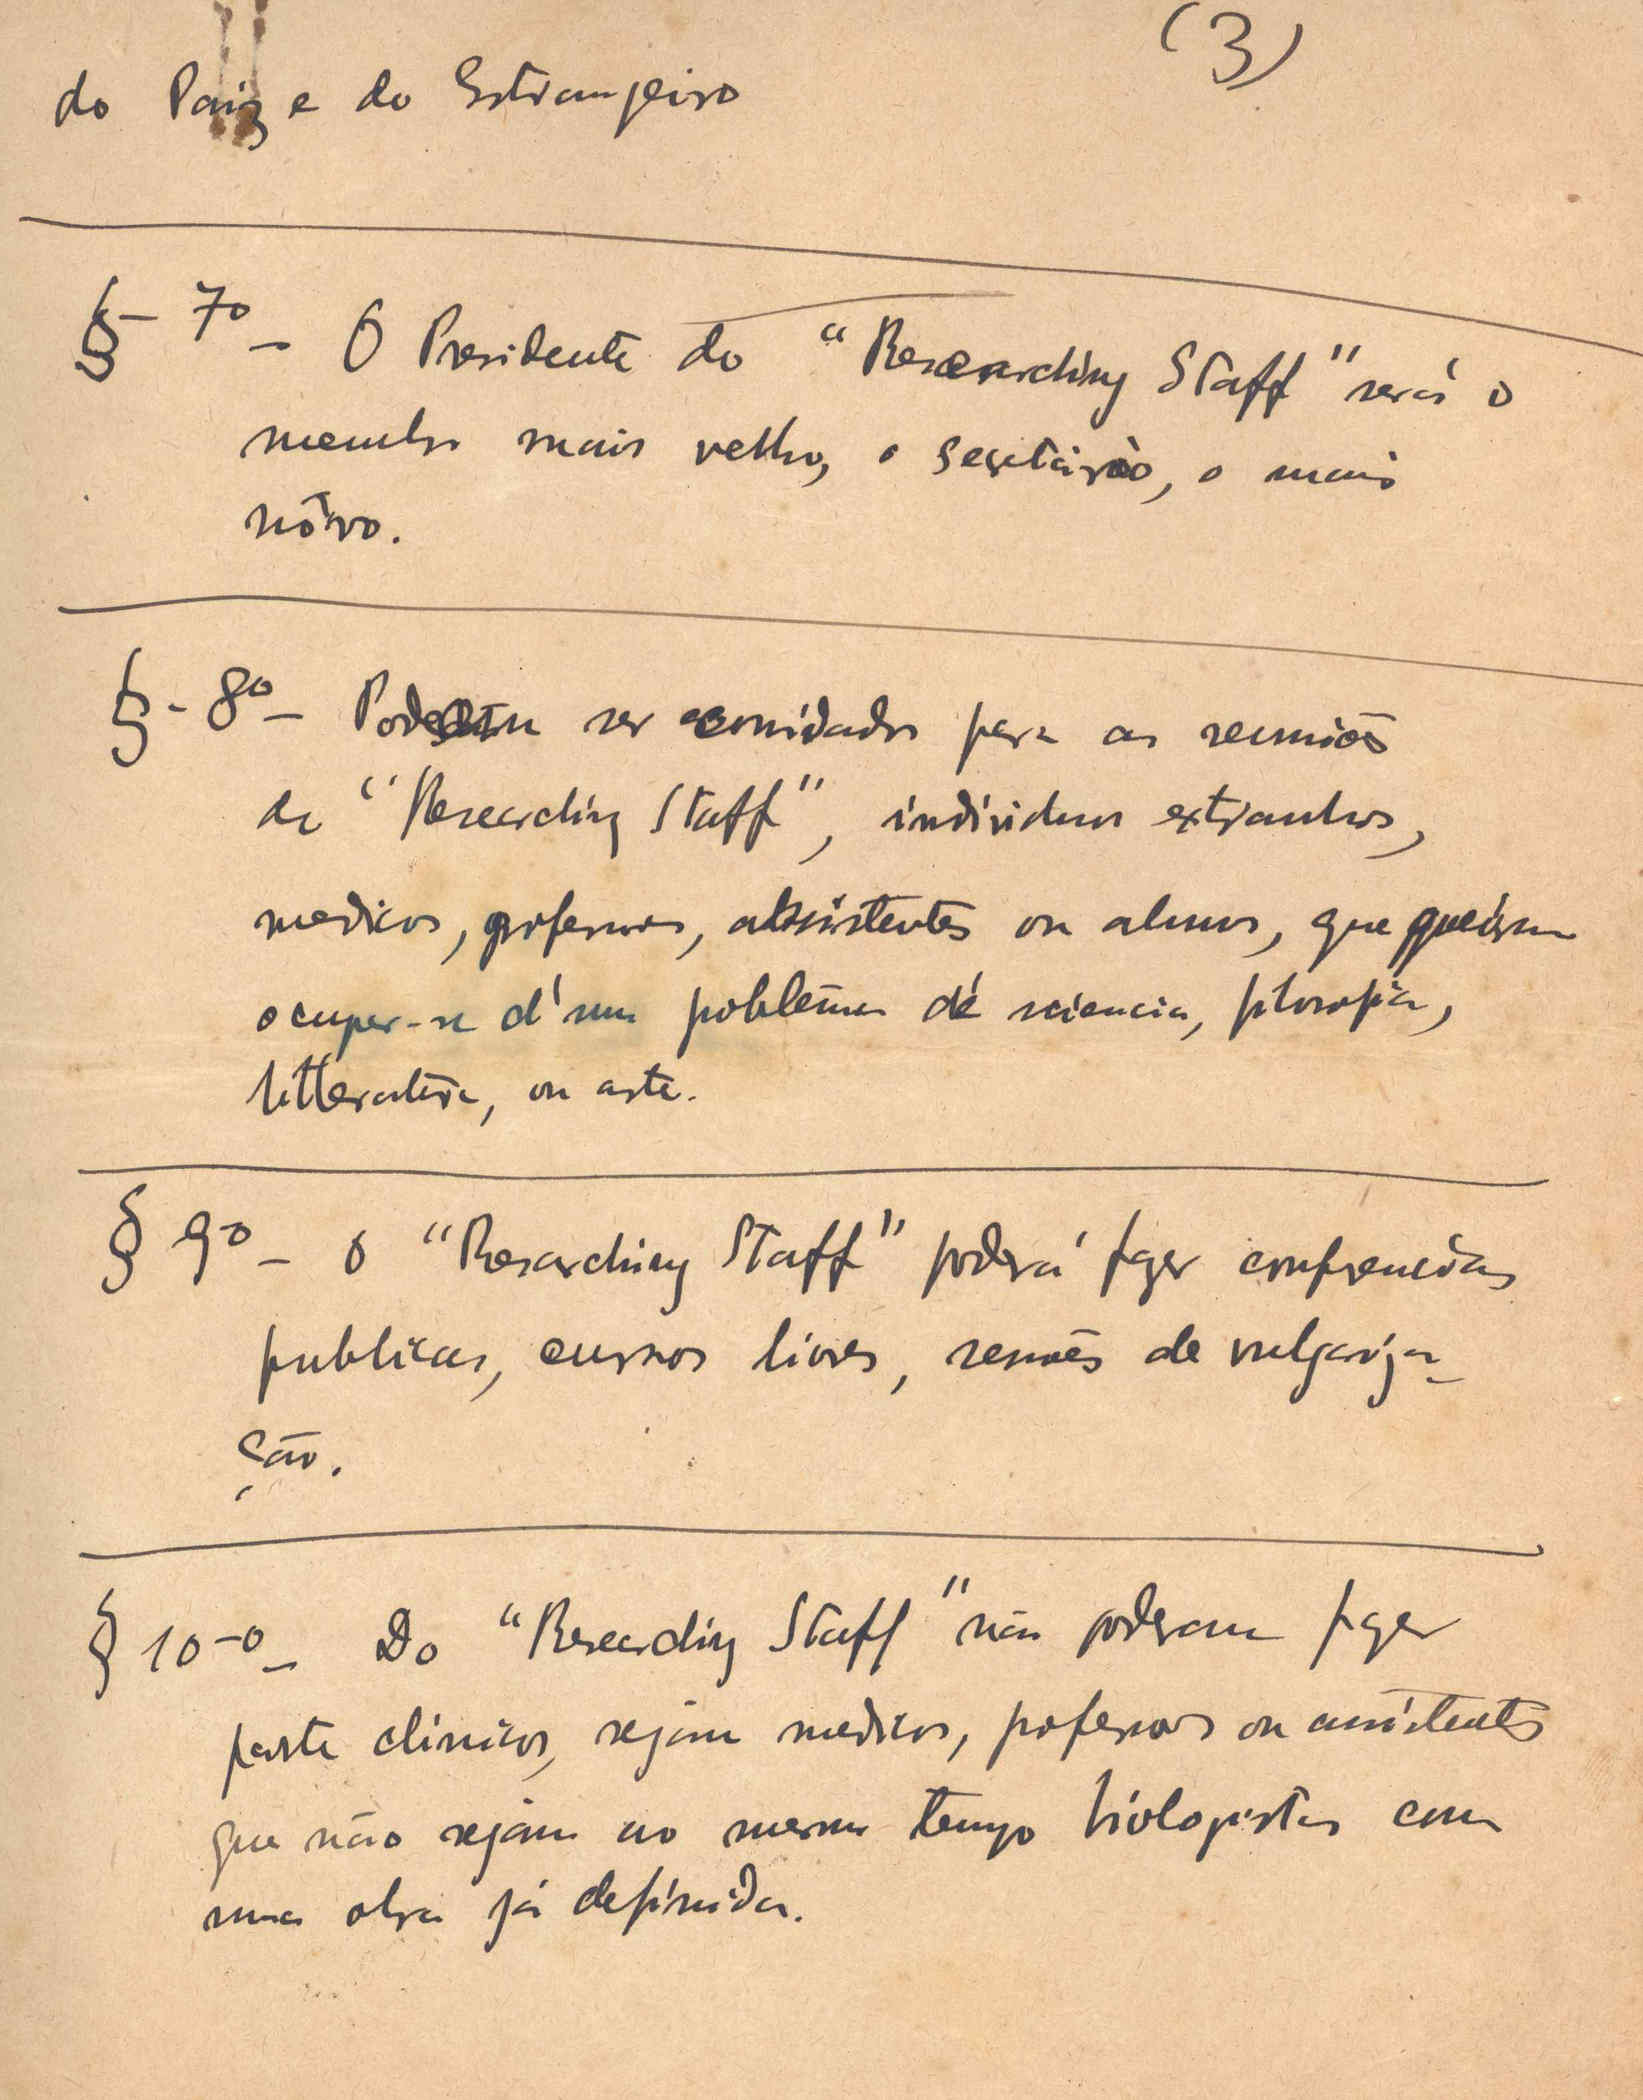 (3)
do Paiz e do Estrangeiro
§ - 7º - O Presidente do "Researching Staff" será o
membro mais velho, o secretário, o mais
nôvo.
§ - 8º - Poderão ser convidados para as reuniões
do "Researching Staff", individuos extranhos,
medicos, professores, assistentes ou alunos, que queiram
ocupar-se d'um problema de sciencia, filosofia,
litteratura, ou arte.
§ 9º - O "Researching Staff" poderá fazer conferencias
publicas, cursos livres, sessões de vulgariza-
ção.
§ 10-º - Do "Researching Staff" não poderam fazer
parte clinicos, sejam medicos, professores ou assistentes
que não sejam ao mesmo tempo biologistas com
uma obra já definida.